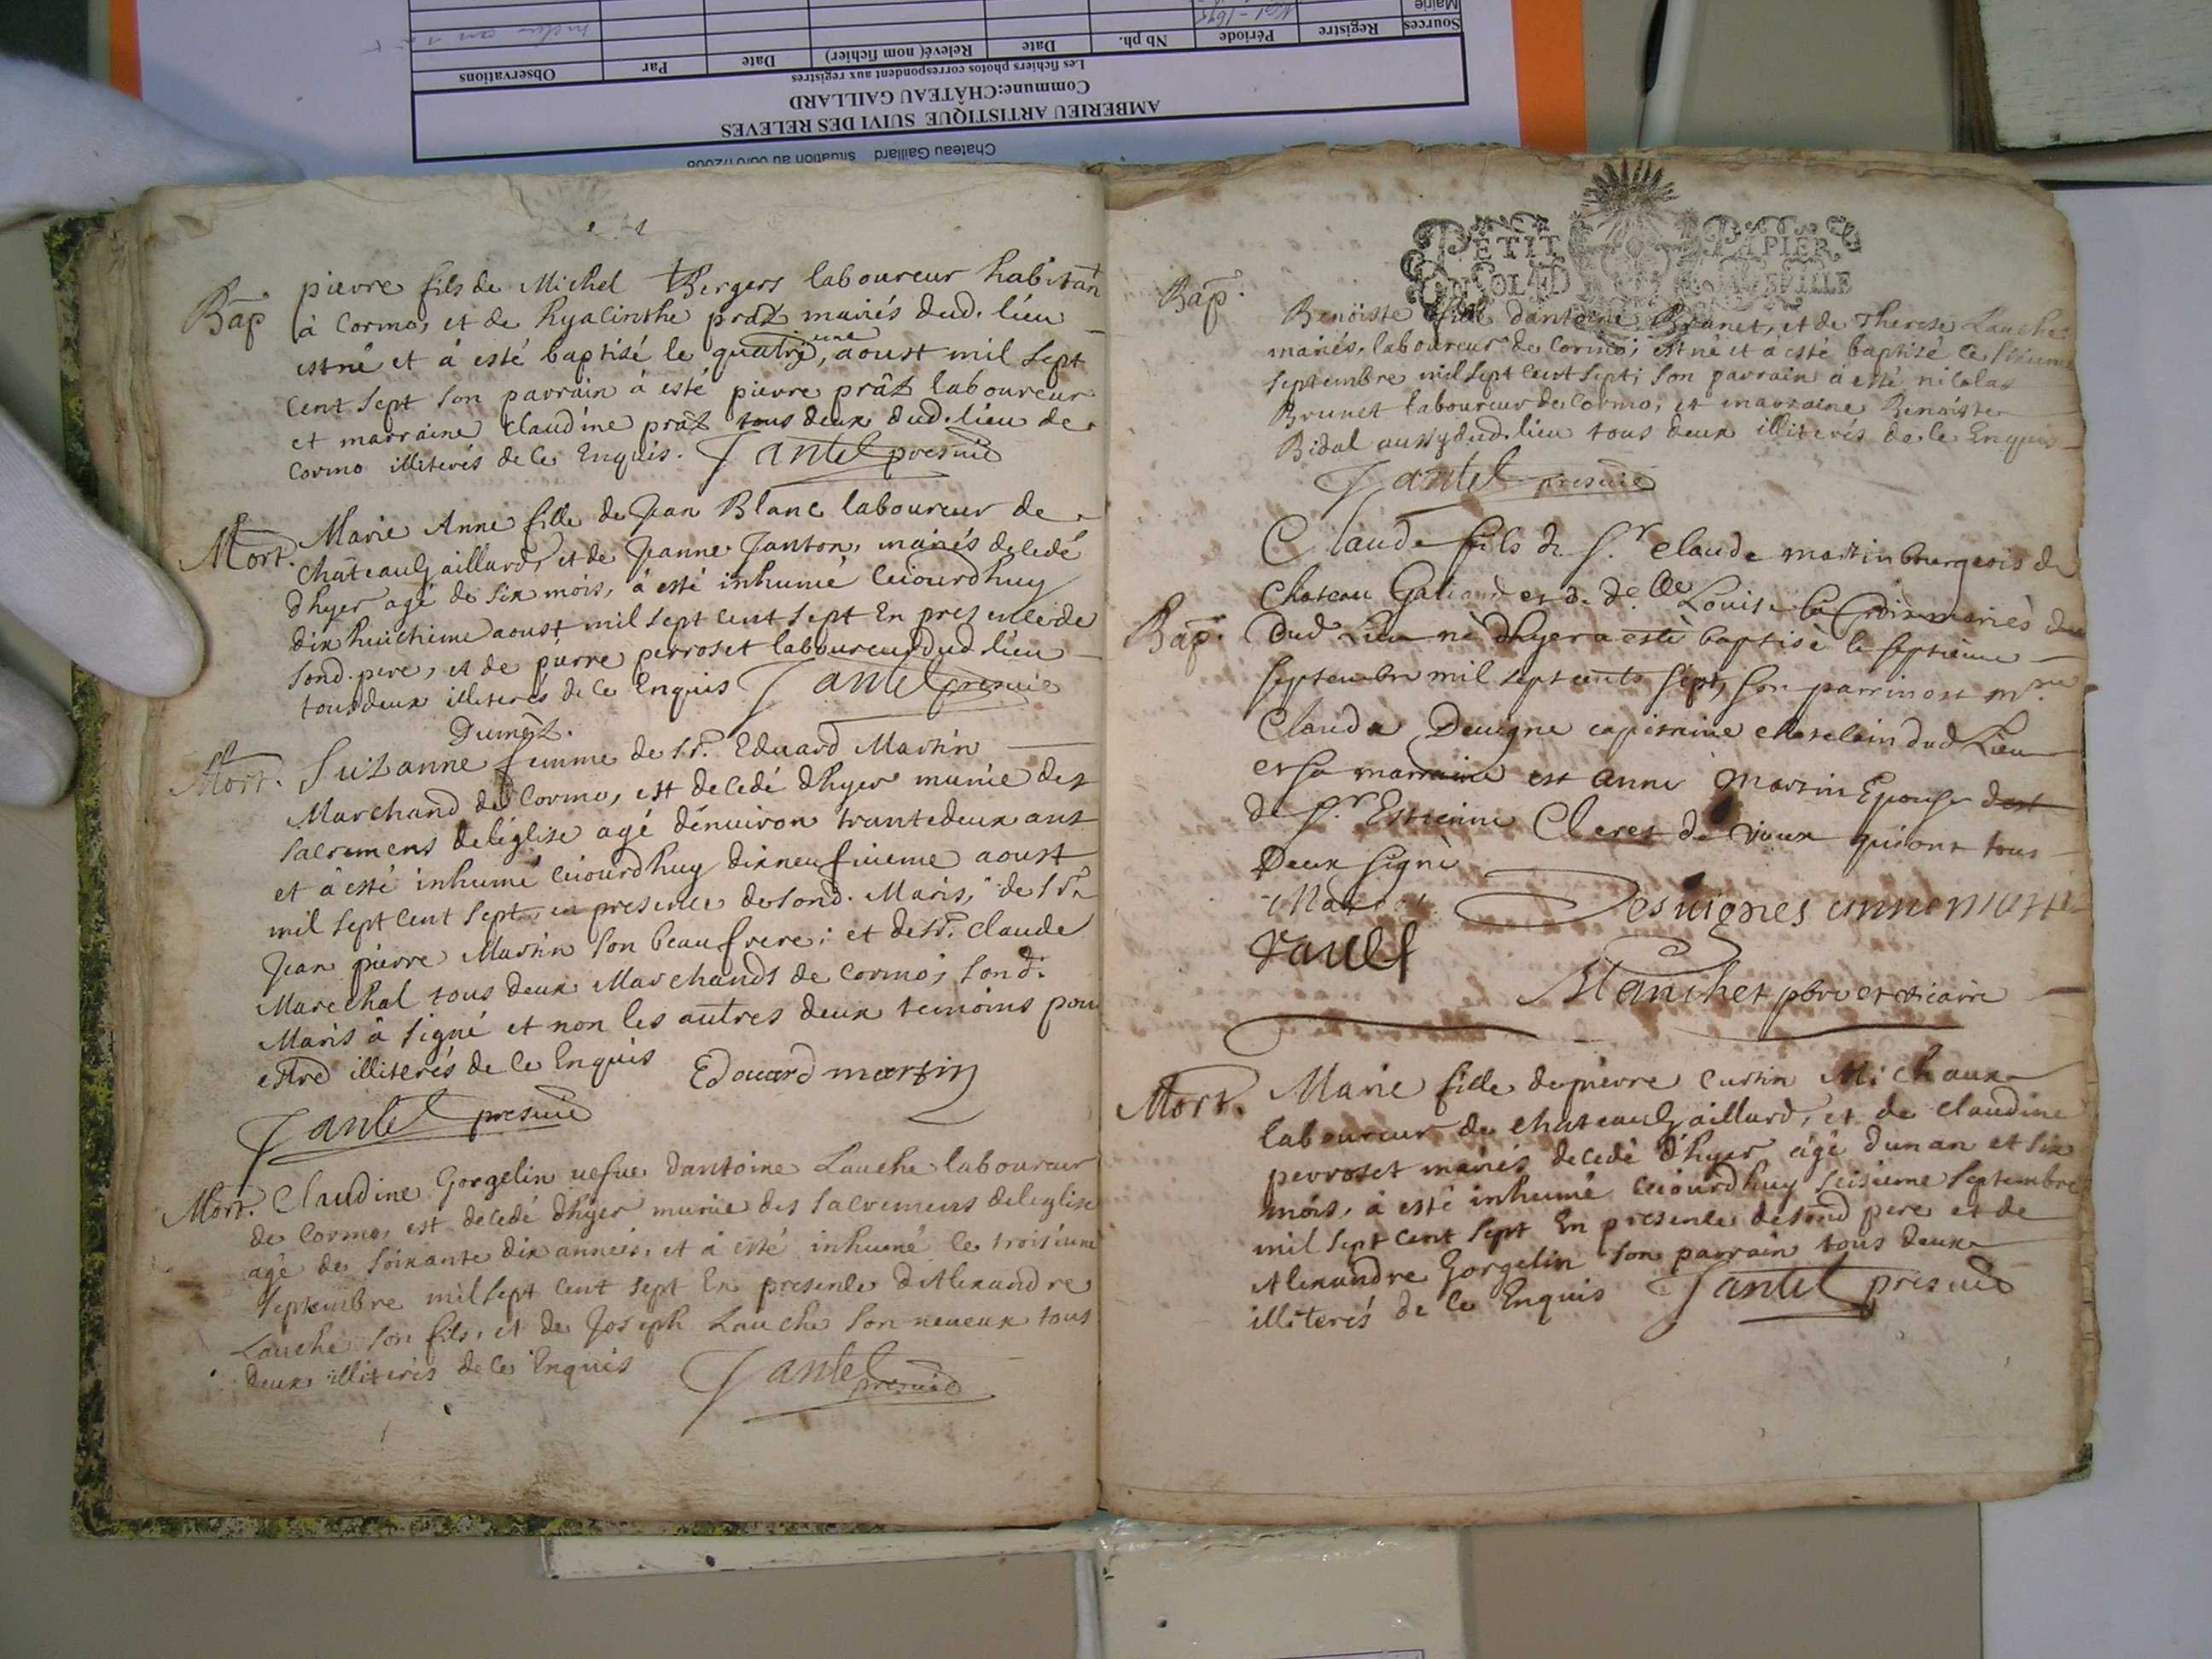 Chateau Gaillard situation au 08/01/2008
AMBERIEU ARTISTIQUE SUIVI DES RELEVES
Commune:CHÂTEAU GAILLARD
Les fichiers photos correspondent aux registres
Sources Registre Période Nb ph. Date Relevé( nom fichier) Date Par Observations
Mairie
Bap
pierre fils de Michel Bergers laboureur habitan
à Cormo, et de hyacinthe praz mariés dud. lieu
est né et à esté baptisé le quatrieme, aoust mil sept
cent sept son parrain à esté pierre prâz laboureur
et marraine claudine praz tous deux dud. lieu de
Cormo illiterés de ce Enquis. Jantet presvié
Mort.
Marie Anne fille de Jean Blanc laboureur de
chateauGaillard, et de Jeanne Janton, mariés decedé
dhyer agé de six mois, à esté inhumé ceiourdhuy
dix huictieme aoust mil sept cent sept En presence de
sond. pere, et de pierre perroset laboureur dud lieu
tous deux illiterés de ce Enquis Jantet presvié
Dumêz.
Mort.
Suzanne femme de Sr. Eduard Martin
Marchand de Cormo, est decedé dhyer munie des
sacremens deléglise agé dénuiron trantedeux ans
et à esté inhumé ceiourdhuy dixneufuieme aoust
mil sept cent sept, en presence de sond. Maris, de Sr.
Jean pierre Martin son beaufrere; et de Sr. claude
Marechal tous deux Marchands de Cormo; sond.
Maris à signé et non les autres deux temoins pour
estre illiterés de ce Enquis Edouard martin
Jantet presvié
Mort.
Claudine Gorgelin uefue dantoine Lauche laboureur
de Cormo, est decedé dhyer munie des sacremens deleglise
agé de soixante dix années, et à esté inhumé le troisieme
septembre mil sept cent sept En presence dAlexandre
Lauche son fils, et de Joseph Lauche son neueux tous
deux illiterés de ce Enquis Jantet presvié
PETIT PAPIER
Bap.
Benoiste fille dantoine Brunet, et de Therese Lauche
mariés, laboureur de Cormo; est né et à esté baptisé le sixieme
septembre mil sept cent sept; son parrain à esté nicolas
Brunet laboureur de Cormo, et marraine Benoiste
Bidal aussy dud. lieu tous deux illiterés de ce Enquis
Jantet presvié
Bap.
Claude fils de Sr. claude martin bourgeois de
Chateau Galiard et de delle Louise la Croix mariès du
dud Lieu nè dhyer a estè baptisè le septieme
septembre mil sept cents sept, son parrin est mre
Claude Deuigne capitaine chatelain dud Lieu
et sa marraine est anne martin Epouse
de Sr. Estienne Cleret de vaux qui ont tous
Deux signè
Desuignes anne marti
vaulx
Manchet pbre et vicaire
Mort.
Marie fille de pierre Curtin Michaux
laboureur de chateauGaillard, et de claudine
perroset mariés decedé d'hyer agé dun an et six
mois, à esté inhumé ceiourdhuy seisieme septembre
mil sept cent sept En presence de sond pere et de
Alexandre Gorgelin son parrain tous deux
illiterés de ce Enquis Jantet presvié